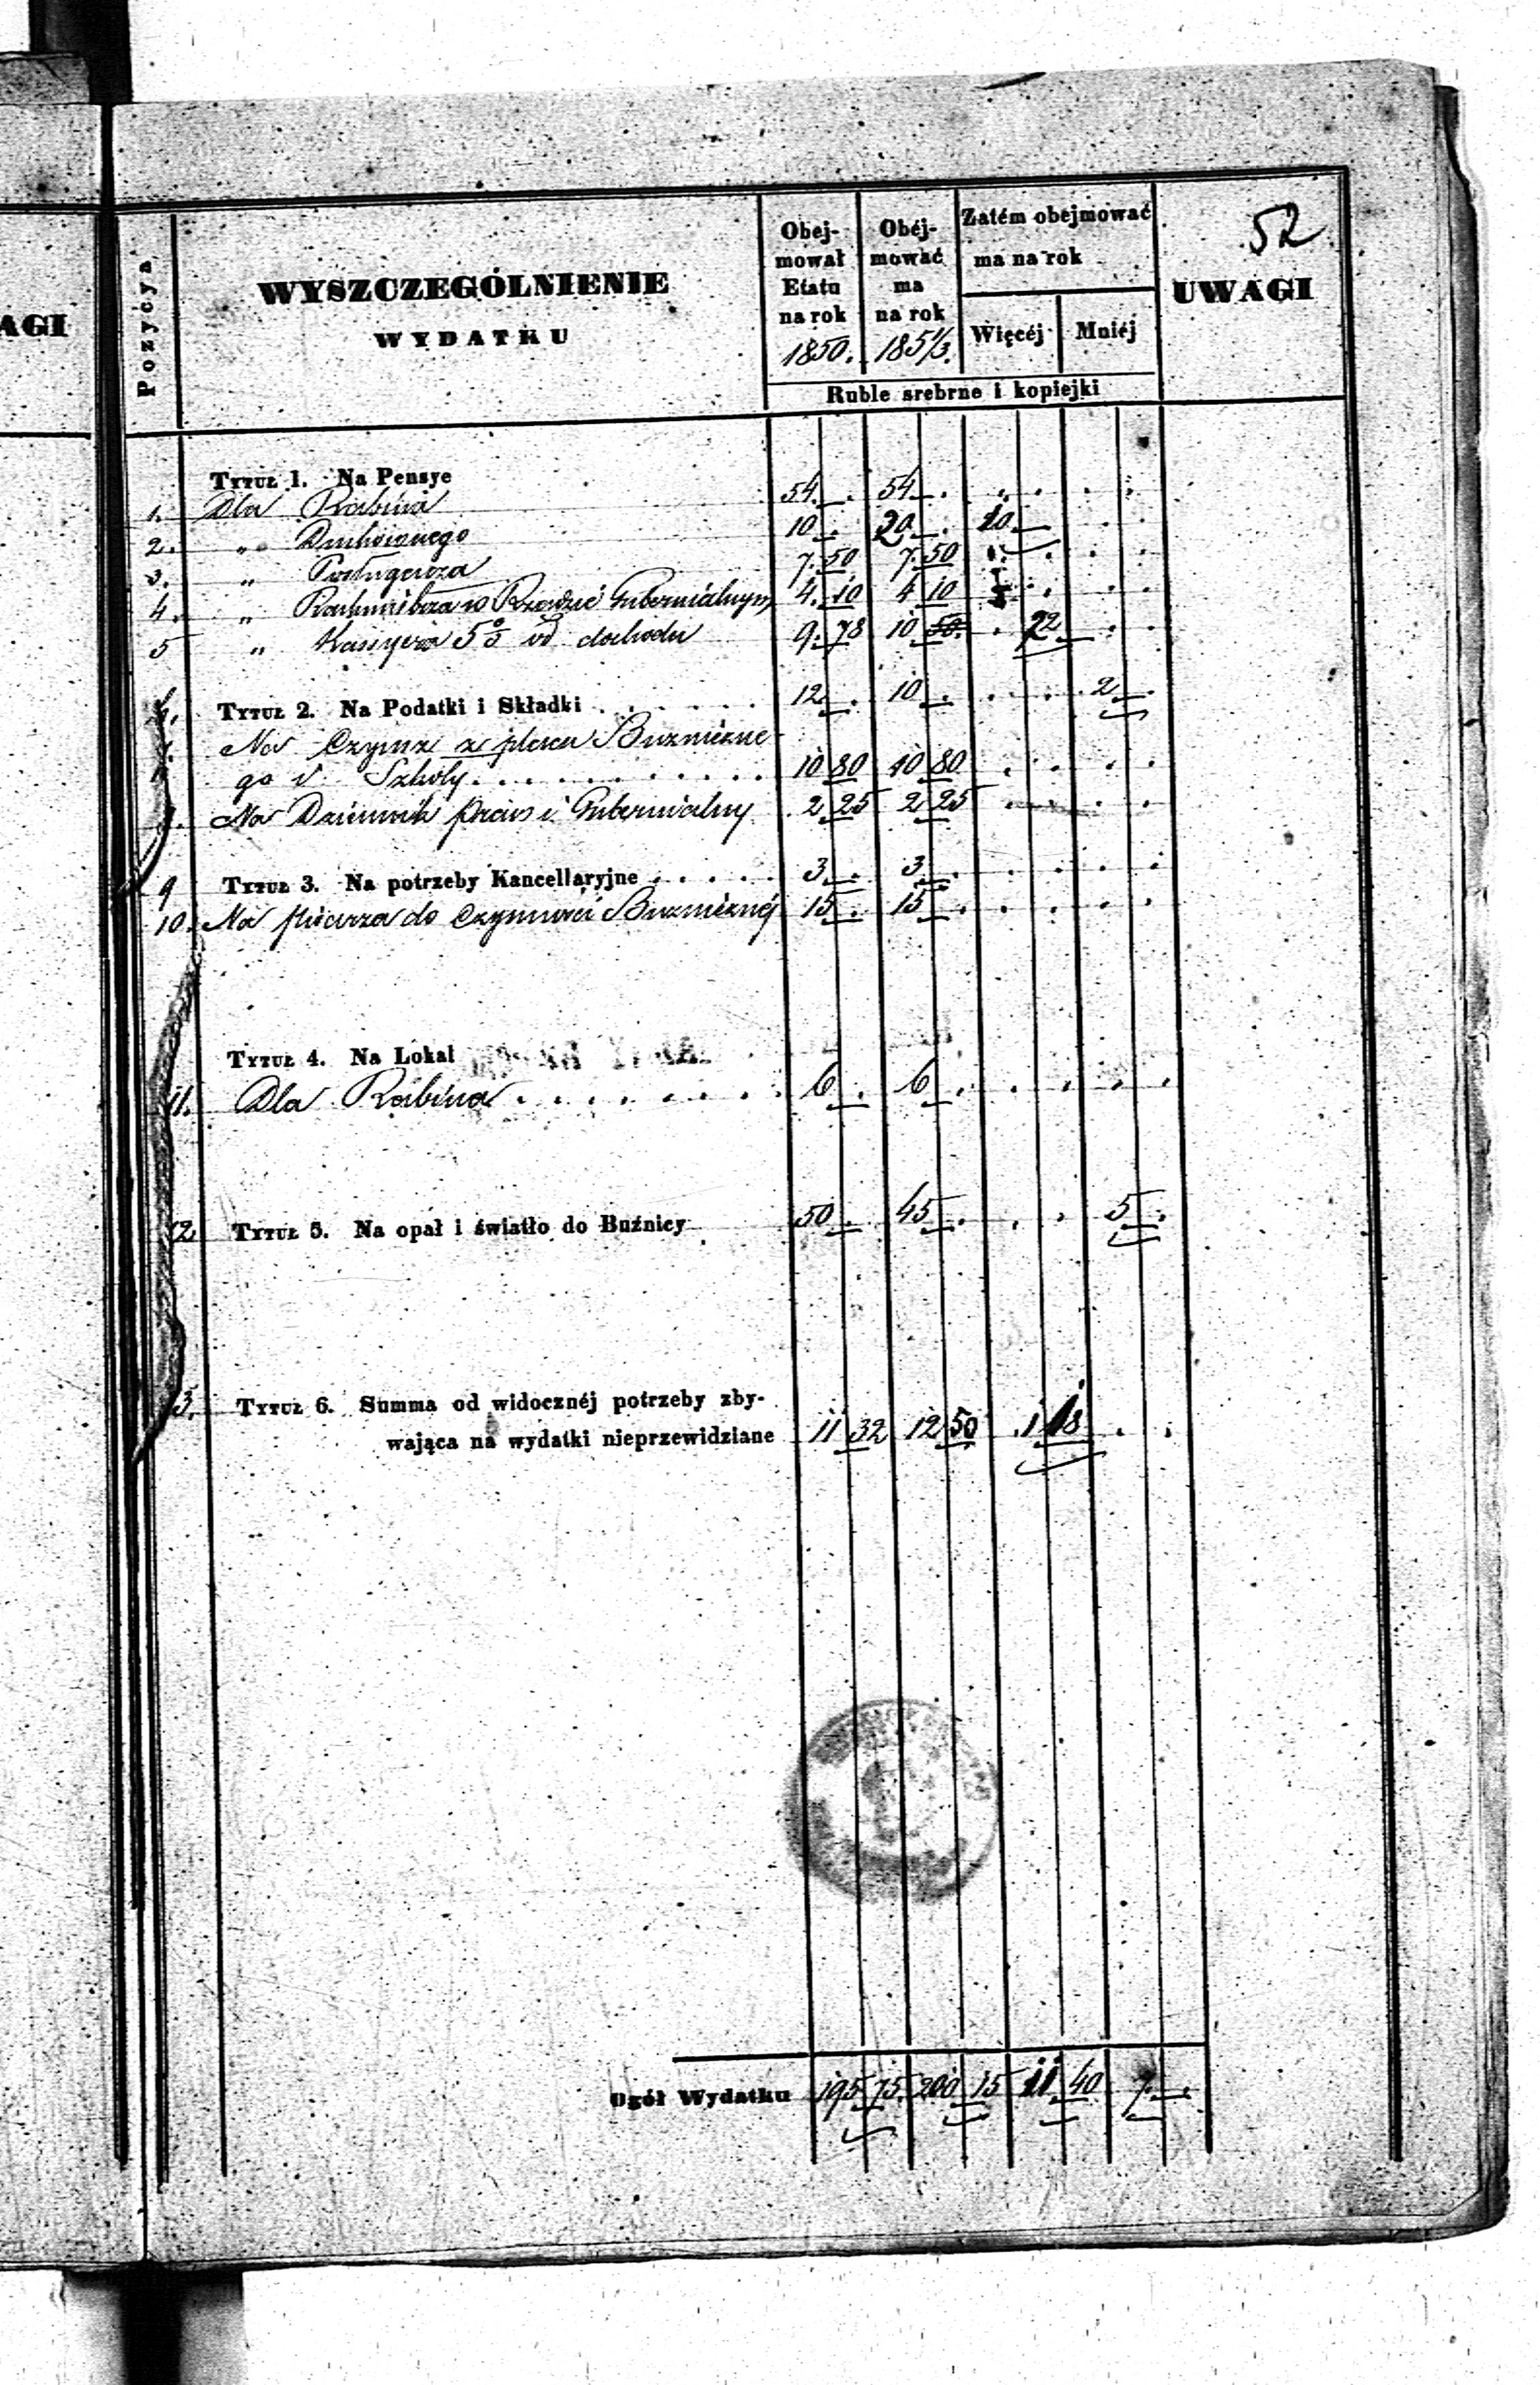 AGI
52
Pozycya
WYSZCZEGÓLNIENIE
WYDATKU
Obej-
mował
Etatu
na rok
1850.
Obéj-
mować
ma
na rok
1851/3.
Zatém obejmować
ma na rok
Więcéj
Mniéj
UWAGI
Ruble srebrne i kopiejki
TYTUŁ 1. Na Pensye
1. Dla Rabina 54 . 54 .
2. „ Duchownego 10 . 20 . 10
3. „ Posługacza 7. 50 7. 50
4. „ Rachmistrza w Rządzie Gubernialnym 4. 10 4 10
5 „ Kassyera 5% od dochodu 9. 78 10 50. . 72
6. TYTUŁ 2. Na Podatki i Składki 12 . 10 . . . 2 .
7. Na Czynsz z placu Buzniczne
go i Szkoły 10 80 10 80
8. Na Dziennik Gubernialny 2 25 2 25
9 TYTUŁ 3. Na potrzeby Kancellaryjne 3 . 3 .
10. Na pisarza do Czynności Buzniczněj 15 . 15 .
TYTUŁ 4. Na Lokal
11. Dla Rabina 6 . 6 .
12. TYTUŁ 5. Na opał i światło do Buźnicy 50 . 45 . . . 5 .
3. TYTUŁ 6. Summa od widocznéj potrzeby zby-
wająca na wydatki nieprzewidziane 11 32 12 50 . 1 18 . .
Ogół Wydatku 195 75. 200 15 11 40 7 .